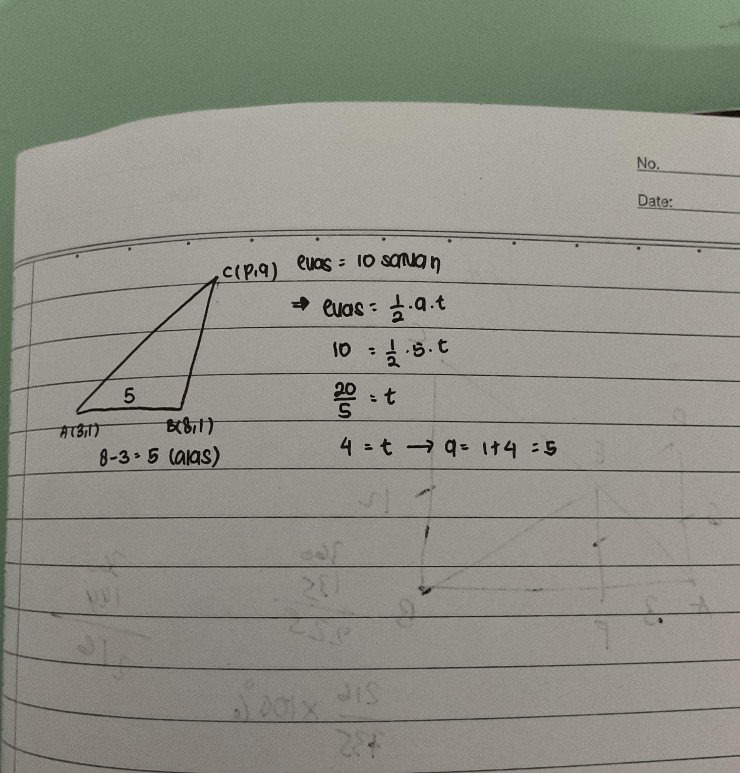 No.
Date:
C(p,q) luas = 10 satuan
⇒ luas = 1/2 . a . t
10 = 1/2 . 5 . t
5
20/5 = t
A(3,1) B(8,1)
8-3 = 5 (alas)
4 = t → q = 1+4 = 5